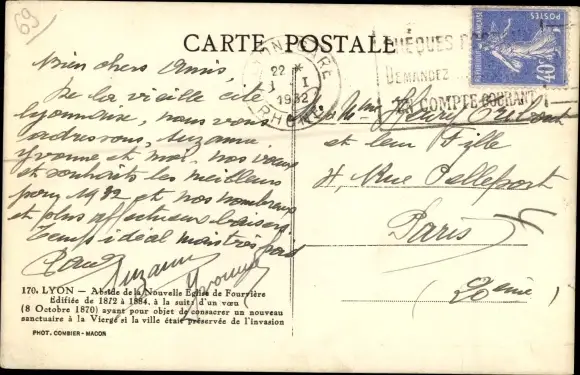 69
CARTE POSTALE
LYON GARE
22 *
I I
1932
RHONE
CHÈQUES
DEMANDEZ
UN COMPTE COURANT
POSTES
40c
Bien chers Amis,
De la vieille cité
lyonnaise, nous vous
adressons, Suzanne,
Yvonne et moi nos vœux
et souhaits les meilleurs
pour 1932 et nos nombreux
et plus affectueux baisers
Temps idéal mais très froid
Suzanne Yvonne
Mr Mme Fleury
et leur Fille
4, Rue Pelleport
Paris
(20ème)
170. LYON — Abside de la Nouvelle Eglise de Fourvière
Edifiée de 1872 à 1884, à la suite d'un vœu
(8 Octobre 1870) ayant pour objet de consacrer un nouveau
sanctuaire à la Vierge si la ville était préservée de l'invasion
PHOT. COMBIER - MACON